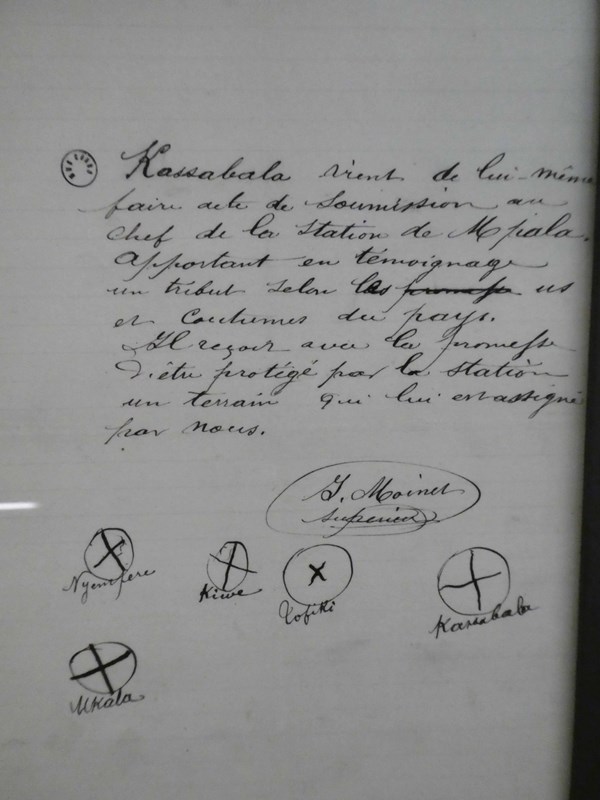 Kassabala vient de lui-même
faire acte de soumission au
chef de la station de Mpala.
Apportant en témoignage
un tribut selon les promesse us
et coutumes du pays.
Il reçoit avec la promesse
d'être protégé par la station
un terrain qui lui est assigné
par nous.
I. Moinet
supérieur
Nyempere Kiwe Tofiki Kassabala
Mkala